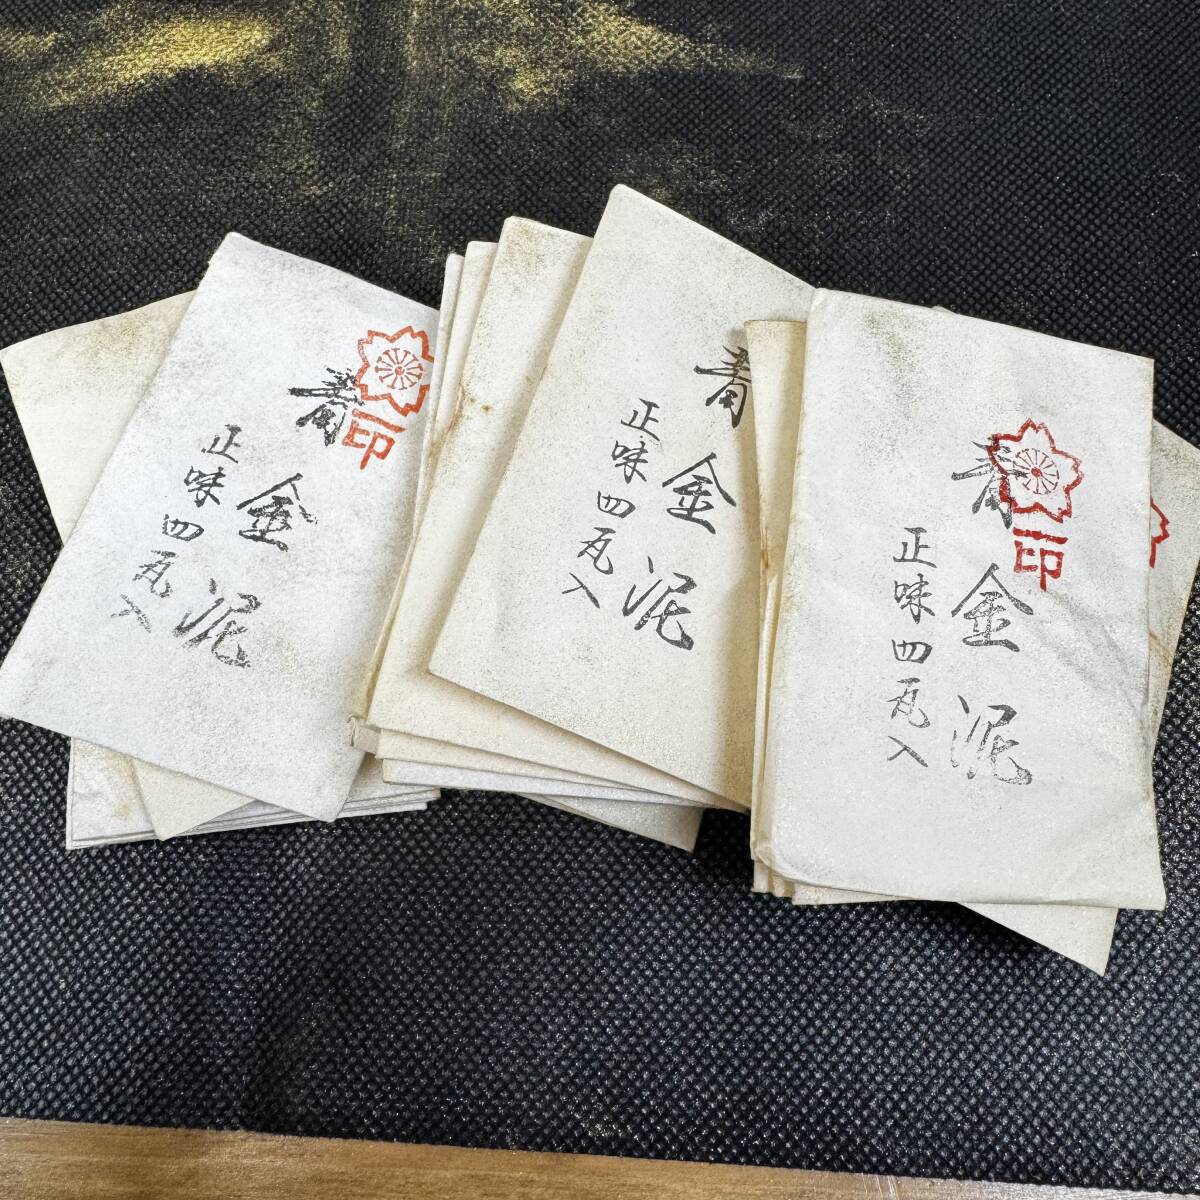 青金泥
正味四瓦入
印
青金泥
正味四瓦入
青金泥
正味四瓦入
印